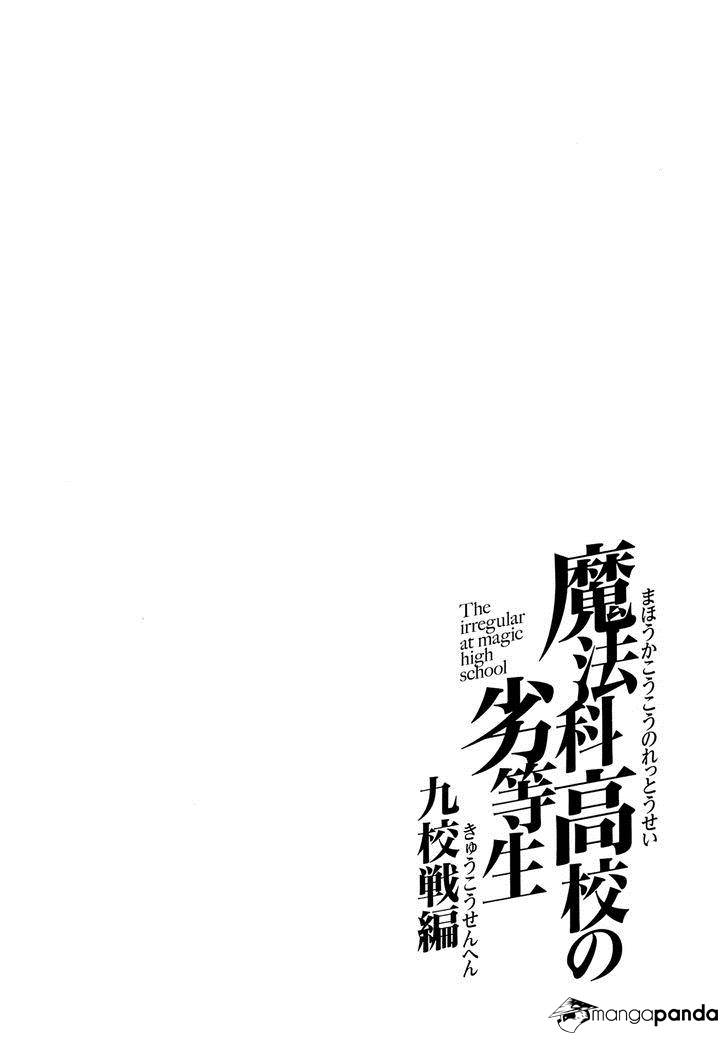 まほうかこうこうのれっとうせい
魔法科高校の
劣等生
The
irregular
at magic
high
school
きゅうこうせんへん
九校戦編
mangapanda